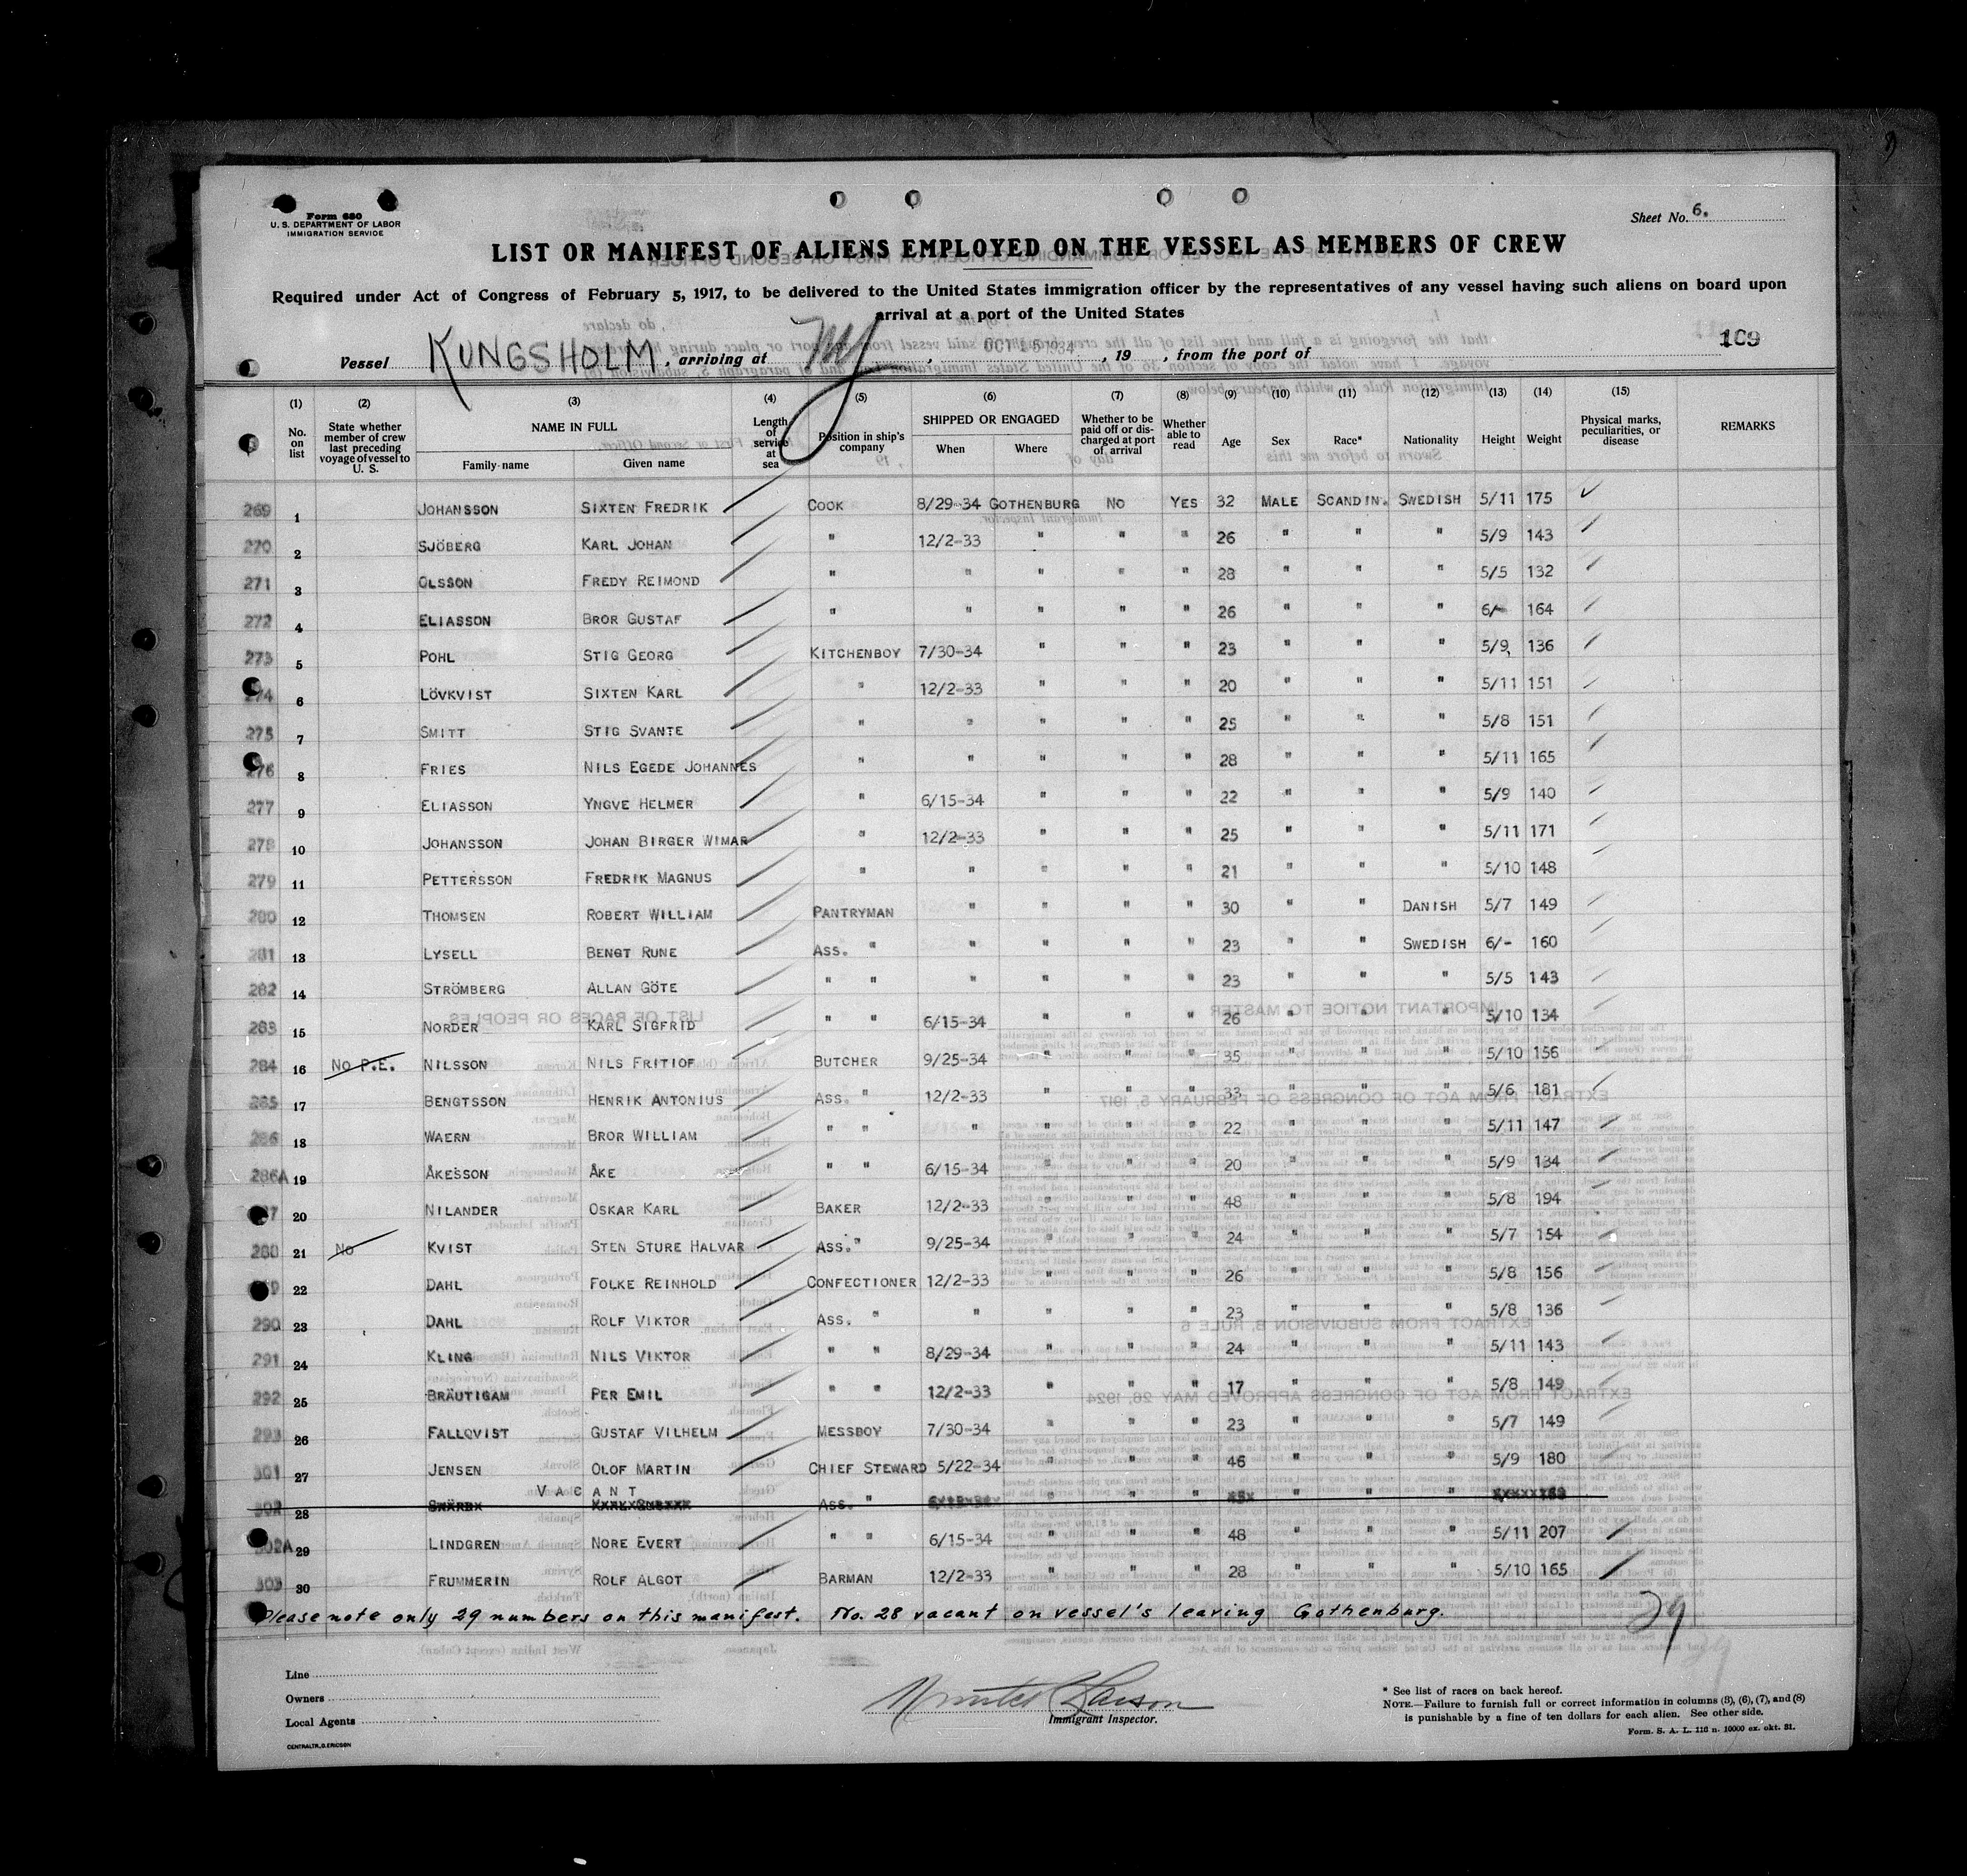 Form 680
U. S. DEPARTMENT OF LABOR
IMMIGRATION SERVICE
Sheet No. 6.
LIST OR MANIFEST OF ALIENS EMPLOYED ON THE VESSEL AS MEMBERS OF CREW
Required under Act of Congress of February 5, 1917, to be delivered to the United States immigration officer by the representatives of any vessel having such aliens on board upon
arrival at a port of the United States
169
Vessel KUNGSHOLM, arriving at NY, OCT 15 1934, 19 , from the port of
(1) No. on list (2) State whether member of crew last preceding voyage of vessel to U. S. (3) NAME IN FULL Family name Given name (4) Length of service at sea (5) Position in ship's company (6) SHIPPED OR ENGAGED When Where (7) Whether to be paid off or discharged at port of arrival (8) Whether able to read (9) Age (10) Sex (11) Race* (12) Nationality (13) Height (14) Weight (15) Physical marks, peculiarities, or disease REMARKS
269 1 JOHANSSON SIXTEN FREDRIK COOK 8/29-34 GOTHENBURG NO YES 32 MALE SCANDIN. SWEDISH 5/11 175
270 2 SJÖBERG KARL JOHAN " 12/2-33 " " " 26 " " " 5/9 143
271 3 OLSSON FREDY REIMOND " " " " " 28 " " " 5/5 132
272 4 ELIASSON BROR GUSTAF " " " " " 26 " " " 6/- 164
273 5 POHL STIG GEORG KITCHENBOY 7/30-34 " " " 23 " " " 5/9 136
274 6 LÖVKVIST SIXTEN KARL " 12/2-33 " " " 20 " " " 5/11 151
275 7 SMITT STIG SVANTE " " " " " 25 " " " 5/8 151
276 8 FRIES NILS EGEDE JOHANNES " " " " " 28 " " " 5/11 165
277 9 ELIASSON YNGVE HELMER " 6/15-34 " " " 22 " " " 5/9 140
278 10 JOHANSSON JOHAN BIRGER WIMAR " 12/2-33 " " " 25 " " " 5/11 171
279 11 PETTERSSON FREDRIK MAGNUS " " " " " 21 " " " 5/10 148
280 12 THOMSEN ROBERT WILLIAM PANTRYMAN " " " " 30 " " DANISH 5/7 149
281 13 LYSELL BENGT RUNE ASS. " " " " " 23 " " SWEDISH 6/- 160
282 14 STRÖMBERG ALLAN GÖTE " " " " " " 23 " " " 5/5 143
283 15 NORDER KARL SIGFRID " " 6/15-34 " " " 26 " " " 5/10 134
284 16 No P.E. NILSSON NILS FRITIOF BUTCHER 9/25-34 " " " 35 " " " 5/10 156
285 17 BENGTSSON HENRIK ANTONIUS ASS. " 12/2-33 " " " 33 " " " 5/6 181
286 18 WAERN BROR WILLIAM " " " " " " 22 " " " 5/11 147
286A 19 ÅKESSON ÅKE " " 6/15-34 " " " 20 " " " 5/9 134
20 NILANDER OSKAR KARL BAKER 12/2-33 " " " 48 " " " 5/8 194
288 21 No KVIST STEN STURE HALVAR ASS. " 9/25-34 " " " 24 " " " 5/7 154
22 DAHL FOLKE REINHOLD CONFECTIONER 12/2-33 " " " 26 " " " 5/8 156
290 23 DAHL ROLF VIKTOR ASS. " " " " " 23 " " " 5/8 136
291 24 KLING NILS VIKTOR " " 8/29-34 " " " 24 " " " 5/11 143
292 25 BRÄUTIGAM PER EMIL " " 12/2-33 " " " 17 " " " 5/8 149
293 26 FALLQVIST GUSTAF VILHELM MESSBOY 7/30-34 " " " 23 " " " 5/7 149
301 27 JENSEN OLOF MARTIN CHIEF STEWARD 5/22-34 " " " 46 " " " 5/9 180
302 28 VACANT ASS. " " " " " " "
302A 29 LINDGREN NORE EVERT " " 6/15-34 " " " 48 " " " 5/11 207
303 30 FRUMMERIN ROLF ALGOT BARMAN 12/2-33 " " " 28 " " " 5/10 165
Please note only 29 numbers on this manifest. No. 28 vacant on vessel's leaving Gothenburg. 29
Line
Owners
Local Agents
CENTRALTR., G. ERICSON
Immigrant Inspector.
* See list of races on back hereof.
NOTE.—Failure to furnish full or correct information in columns (3), (6), (7), and (8)
is punishable by a fine of ten dollars for each alien. See other side.
Form. S. A. L. 116 n. 10000 ex. okt. 31.